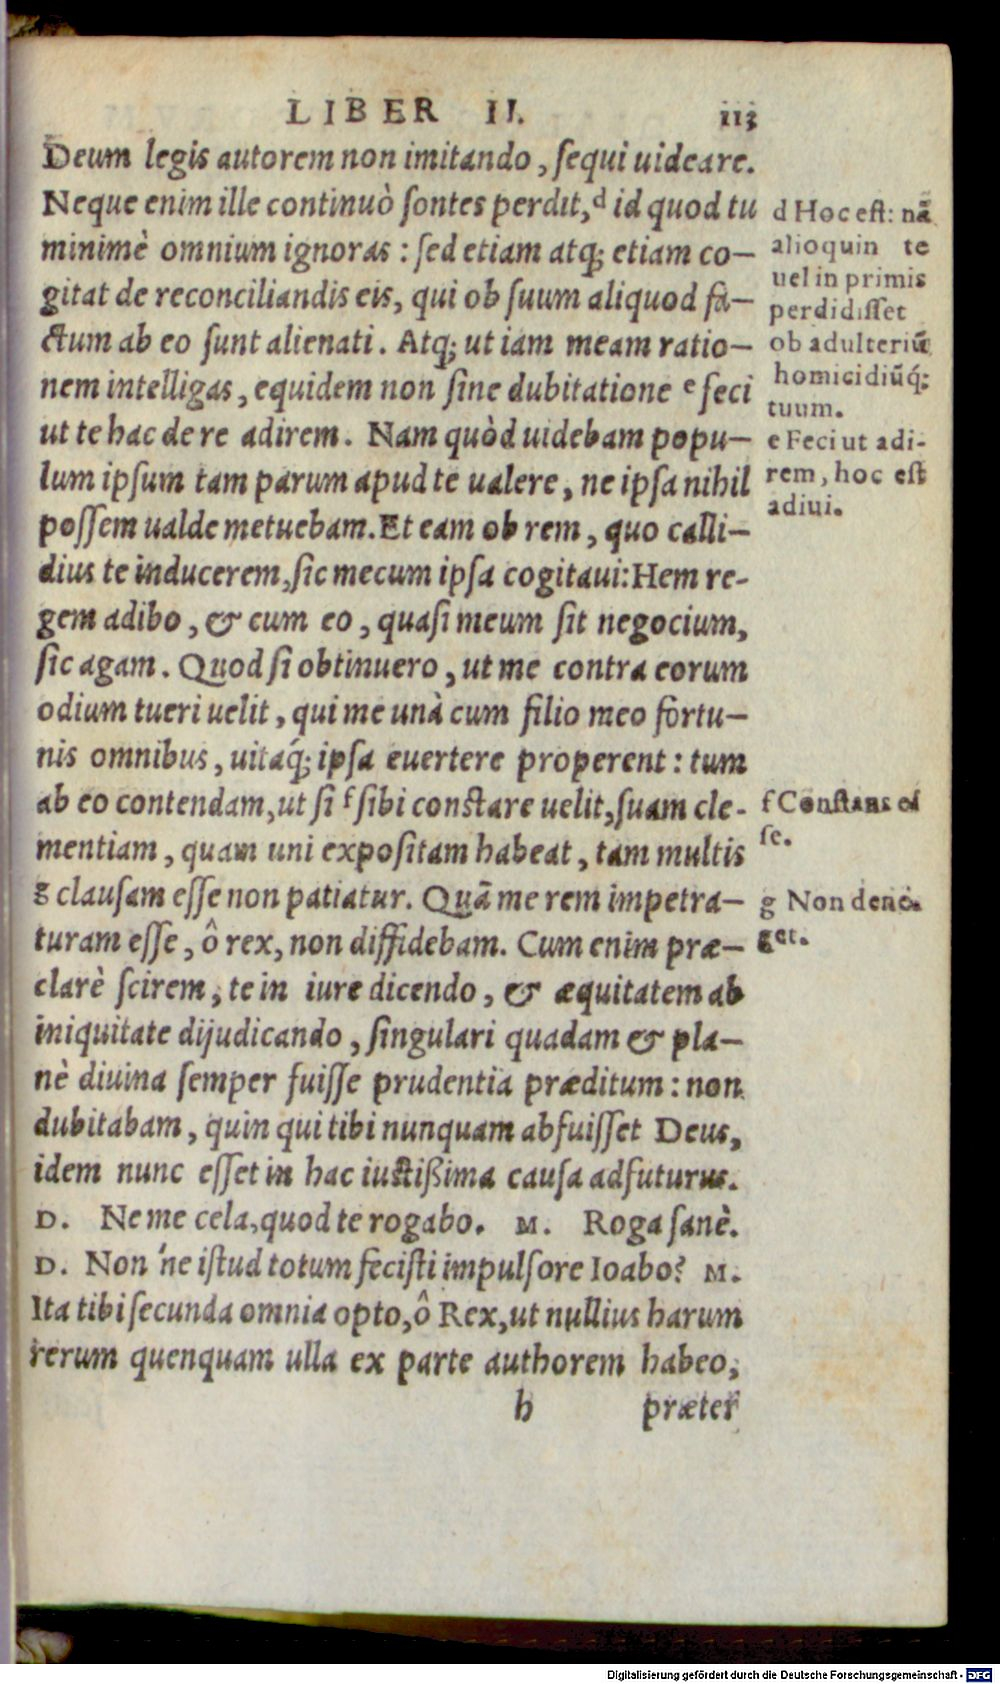 LIBER II. 113
Deum legis autorem non imitando, sequi uideare.
Neque enim ille continuò sontes perdit,ᵈ id quod tu
minimè omnium ignoras : sed etiam atq; etiam co-
gitat de reconciliandis eis, qui ob suum aliquod fa-
ctum ab eo sunt alienati. Atq; ut iam meam ratio-
nem intelligas, equidem non sine dubitatione ᵉ feci
ut te hac de re adirem. Nam quòd uidebam popu-
lum ipsum tam parum apud te ualere, ne ipsa nihil
possem ualde metuebam. Et eam ob rem, quo calli-
dius te inducerem, sic mecum ipsa cogitaui: Hem re-
gem adibo, & cum eo, quasi meum sit negocium,
sic agam. Quod si obtinuero, ut me contra eorum
odium tueri uelit, qui me unà cum filio meo fortu-
nis omnibus, uitaq́; ipsa euertere properent : tum
ab eo contendam, ut si ᶠ sibi constare uelit, suam cle-
mentiam, quam uni expositam habeat, tam multis
g clausam esse non patiatur. Quā me rem impetra-
turam esse, ô rex, non diffidebam. Cum enim præ-
clarè scirem, te in iure dicendo, & æquitatem ab
iniquitate dijudicando, singulari quadam & pla-
nè diuina semper fuisse prudentia præditum : non
dubitabam, quin qui tibi nunquam abfuisset Deus,
idem nunc esset in hac iustißima causa adfuturus.
D. Ne me cela, quod te rogabo. M. Roga sanè.
D. Non 'ne istud totum fecisti impulsore Ioabo? M.
Ita tibi secunda omnia opto, ô Rex, ut nullius harum
rerum quenquam ulla ex parte authorem habeo,
h præter
d Hoc est: nā
alioquin te
uel in primis
perdidisset
ob adulteriū
homicidiūq́;
tuum.
e Feci ut adi-
rem, hoc est
adiui.
f Constans es
se.
g Non dene-
get.
Digitalisierung gefördert durch die Deutsche Forschungsgemeinschaft - DFG